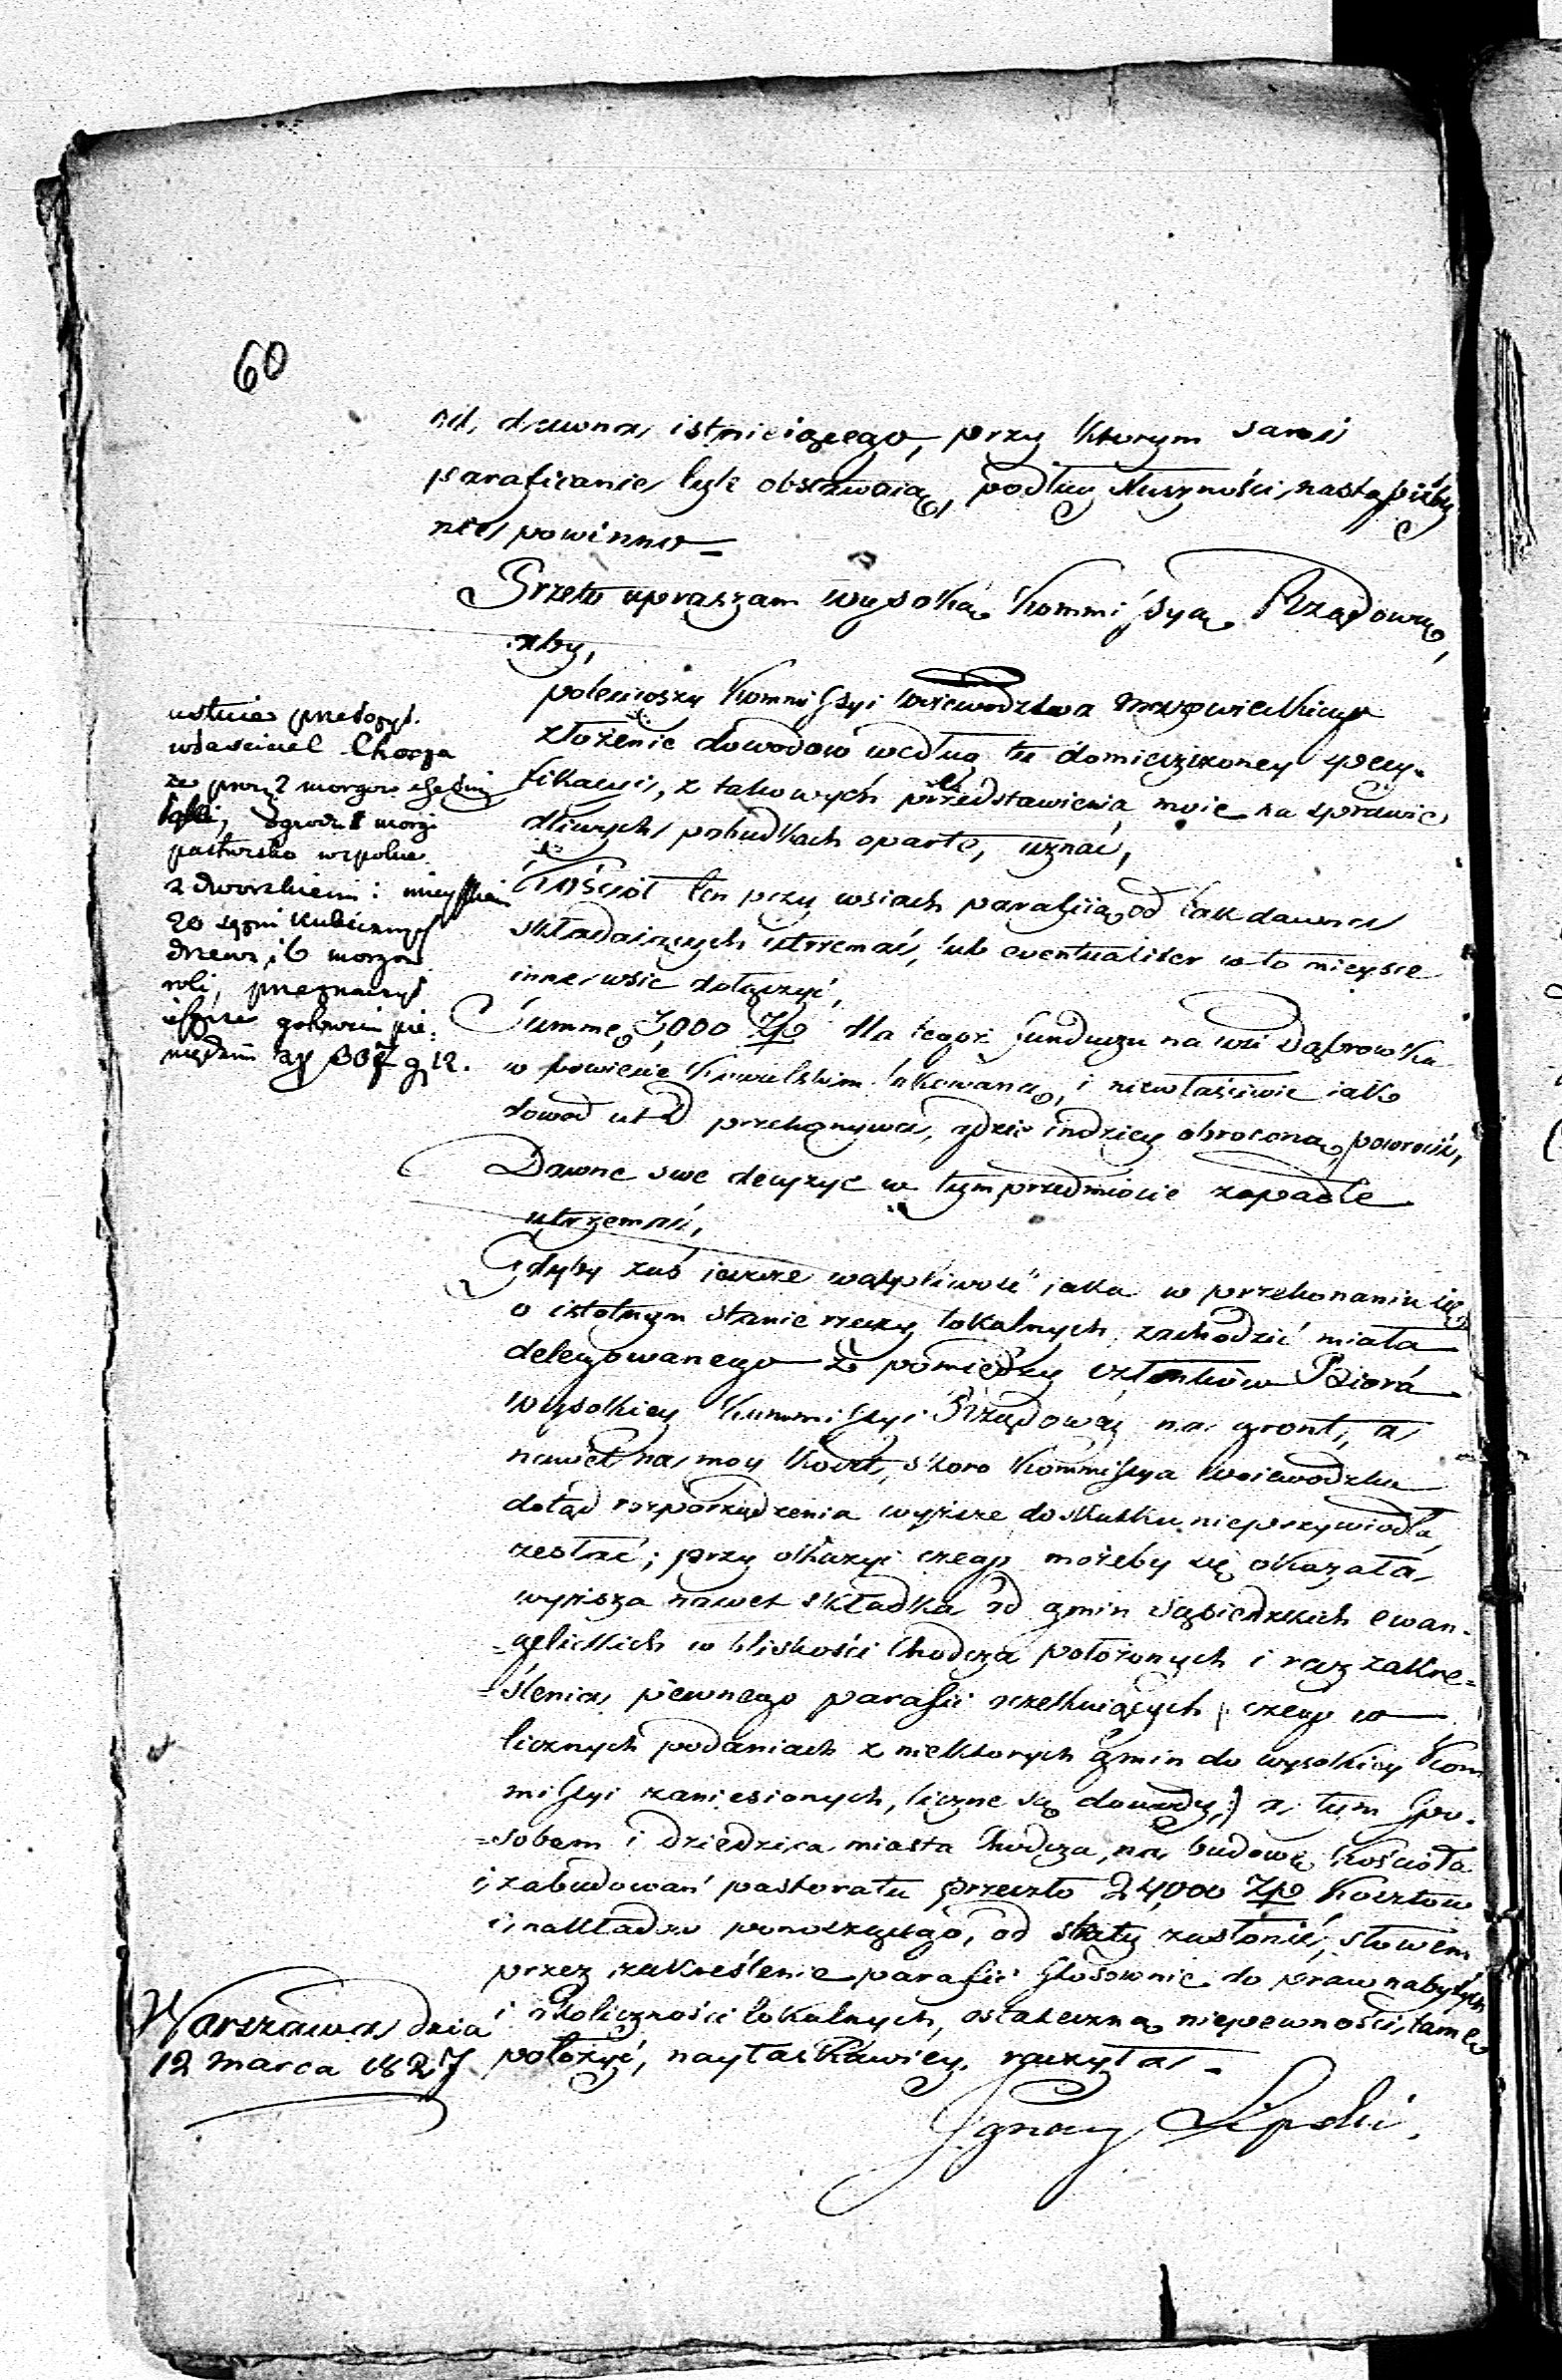 60
od dawna istnieiącego, przy ktorym sami
parafianie tyle obstawaią, podług słuszności, nastąpićby
nie powinno =
Przeto upraszam wysoką Kommissyą Rządową,
aby,
poleciwszy Kommissyi Woiewodztwa Mazowieckiego
złożenie dowodow według tu domieszczoney specy-
fikacyi, z takowych przedstawienia moie na sprawie
dliwych pobudkach oparte, uznać,
Kościoł ten przy wsiach parafiią od tak dawna
składaiących utrzemać, lub eventualiter w to mieysce
inne wsie dołączyć,
Summę 3,000 Zp dla tegoż funduszu na wsi Dąbrowka
w powiecie Kowalskim lokowaną, i niewłaściwie iak
dowod ut D przekonywa, gdzie indziey obroconą powrocić,
Dawne swe decyzye w tym przedmiocie zapadłe
utrzemać,
Gdyby zaś ieszcze wątpliwość iaka w przekonaniu się
o istotnym stanie rzeczy lokalnych zachodzić miała
delegowanego z pomiędzy członków Biora
wysokiey Kommissyi Rządowey na gront, a
nawet na moy koszt, skoro Kommissya Woiewodzka
dotąd rozporządzenia wyższe do skutku nieprzywiodła,
zesłać; przy okazyi czego możeby się okazała,
wyższa nawet składka od gmin sąsiedzkich ewan-
=gelickich w bliskości Chodcza położonych i raz zakre-
=ślenia pewnego parafii oczekuiących /: czego w
licznych podaniach z niektorych gmin do wysokiey Kom
missyi zaniesionych, liczne są dowody :/ a tym spo-
=sobem i dziedzica miasta Chodcza, na budowę Kościoła
i zabudowań pastoratu przeszło 24,000 Zp kosztow
i nakładu ponoszącego, od straty zasłonić, słowem
przez zakreślenie parafii stosownie do praw nabytych
i okoliczności lokalnych, ostateczną niepewności tamę
położyć, nayłaskawiey raczyła -
Ignacy Lipski.
ustnie przełożył
własciciel Chocza
że procz 2 morgow
łąki, ogrodu 1 morgi
pastwisko wspolne
z dworskiem i mieyskiem
20 sązni kubicznych
drzewa, i 6 morgow
roli, przeznaczył
ieszcze gotowemi pie-
niędzmi zp 307 g 12.
Warszawa dnia
12 Marca 1827